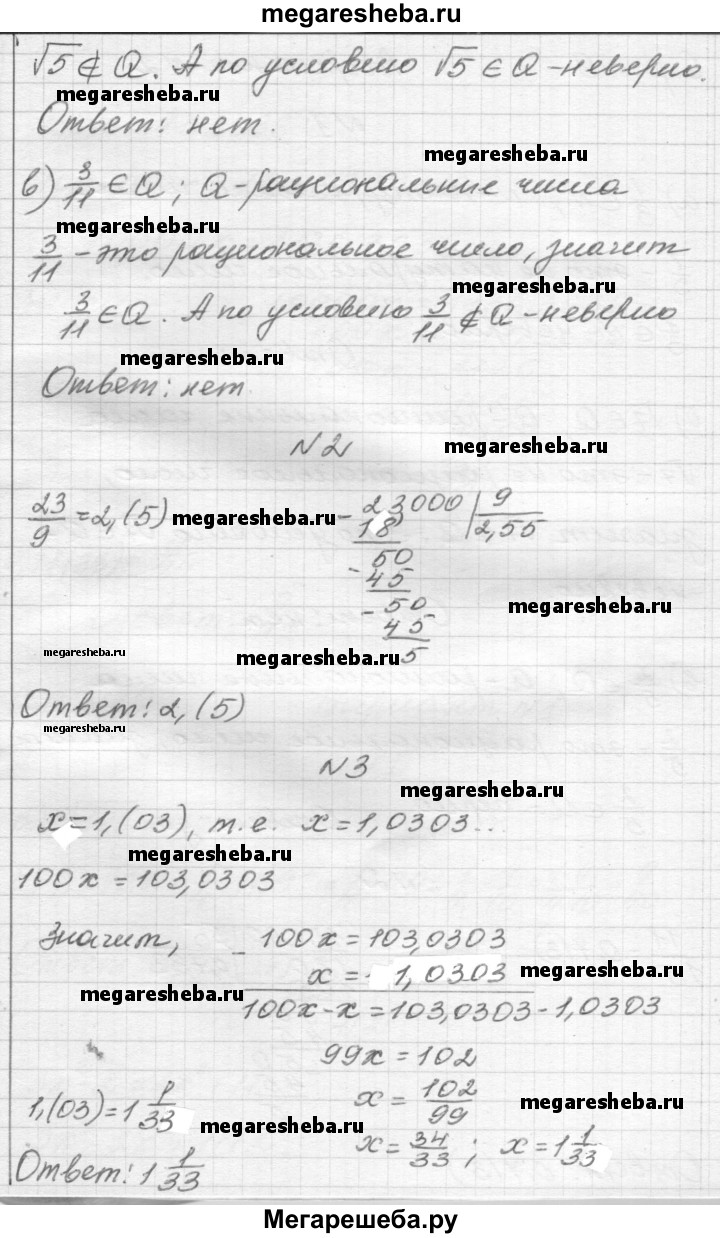 megaresheba.ru
√5 ∉ Q. А по условию √5 ∈ Q - неверно.
megaresheba.ru
Ответ: нет.
megaresheba.ru
в) 3/11 ∈ Q; Q - рациональные числа
megaresheba.ru
3/11 - это рациональное число, значит
megaresheba.ru
3/11 ∈ Q. А по условию 3/11 ∉ Q - неверно
megaresheba.ru
Ответ: нет.
N2 megaresheba.ru
23/9 = 2,(5) megaresheba.ru - 23000 | 9
18 2,55
50
- 45
- 50 megaresheba.ru
45
megaresheba.ru megaresheba.ru 5
Ответ: 2,(5)
megaresheba.ru
N3
megaresheba.ru
x = 1,(03), т.е. x = 1,0303...
megaresheba.ru
100x = 103,0303
Значит, - 100x = 103,0303
x = 1,0303 megaresheba.ru
megaresheba.ru
100x - x = 103,0303 - 1,0303
99x = 102
1,(03) = 1 1/33 x = 102/99 megaresheba.ru
megaresheba.ru
x = 34/33; x = 1 1/33
Ответ: 1 1/33
Мегарешеба.ру